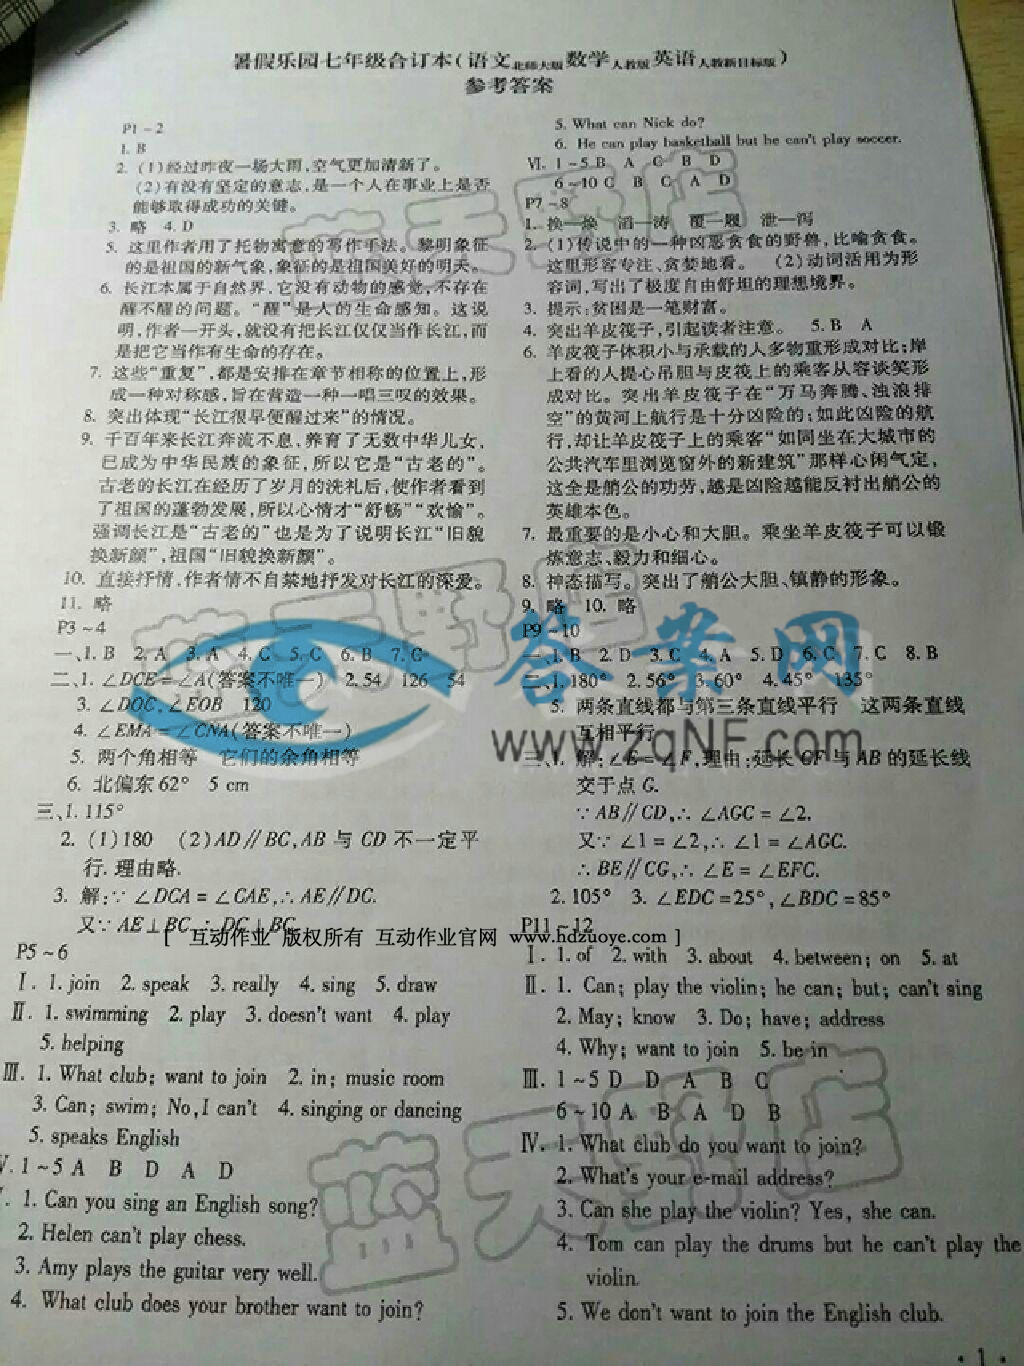 暑假乐园七年级合订本(语文北师大版数学人教版英语人教新目标版)
参考答案
P1~2
1. B
2. (1)经过昨夜一场大雨,空气更加清新了。
(2)有没有坚定的意志,是一个人在事业上是否
能够取得成功的关键。
3. 略 4. D
5. 这里作者用了托物寓意的写作手法。黎明象征
的是祖国的新气象,象征的是祖国美好的明天。
6. 长江本属于自然界,它没有动物的感觉,不存在
醒不醒的问题。“醒”是人的生命感知。这说
明,作者一开头,就没有把长江仅仅当作长江,而
是把它当作有生命的存在。
7. 这些“重复”,都是安排在章节相称的位置上,形
成一种对称感,旨在营造一种一唱三叹的效果。
8. 突出体现“长江很早便醒过来”的情况。
9. 千百年来长江奔流不息、养育了无数中华儿女,
已成为中华民族的象征,所以它是“古老的”。
古老的长江在经历了岁月的洗礼后,使作者看到
了祖国的蓬勃发展,所以心情才“舒畅”“欢愉”。
强调长江是“古老的”也是为了说明长江“旧貌
换新颜”,祖国“旧貌换新颜”。
10. 直接抒情,作者情不自禁地抒发对长江的深爱。
11. 略
P3~4
一、1. B 2. A 3. A 4. C 5. C 6. B 7. C
二、1. ∠DCE=∠A(答案不唯一) 2. 54 126 54
3. ∠DOC、∠EOB 120
4. ∠EMA=∠CNA(答案不唯一)
5. 两个角相等 它们的余角相等
6. 北偏东62° 5 cm
三、1. 115°
2. (1)180 (2)AD∥BC,AB 与 CD 不一定平
行. 理由略.
3. 解:∵∠DCA=∠CAE,∴AE∥DC.
又∵AE⊥BC,∴DC⊥BC.
[ 互动作业 版权所有 互动作业官网 www.hdzuoye.com ]
P5~6
Ⅰ. 1. join 2. speak 3. really 4. sing 5. draw
Ⅱ. 1. swimming 2. play 3. doesn't want 4. play
5. helping
Ⅲ. 1. What club; want to join 2. in; music room
3. Can; swim; No, I can't 4. singing or dancing
5. speaks English
Ⅳ. 1~5 A B D A D
Ⅴ. 1. Can you sing an English song?
2. Helen can't play chess.
3. Amy plays the guitar very well.
4. What club does your brother want to join?
5. What can Nick do?
6. He can play basketball but he can't play soccer.
Ⅵ. 1~5 B A C B D
6~10 C B C A D
P7~8
1. 换—焕 滔—涛 覆—履 泄—泻
2. (1)传说中的一种凶恶贪食的野兽,比喻贪食。
这里形容专注、贪婪地看。 (2)动词活用为形
容词,写出了极度自由舒坦的理想境界。
3. 提示:贫困是一笔财富。
4. 突出羊皮筏子,引起读者注意。 5. B A
6. 羊皮筏子体积小与承载的人多物重形成对比;岸
上看的人提心吊胆与皮筏上的乘客从容谈笑形
成对比。突出羊皮筏子在“万马奔腾、浊浪排
空”的黄河上航行是十分凶险的;如此凶险的航
行,却让羊皮筏子上的乘客“如同坐在大城市的
公共汽车里浏览窗外的新建筑”那样心闲气定,
这全是艄公的功劳,越是凶险越能反衬出艄公的
英雄本色。
7. 最重要的是小心和大胆。乘坐羊皮筏子可以锻
炼意志、毅力和细心。
8. 神态描写。突出了艄公大胆、镇静的形象。
9. 略 10. 略
P9~10
一、1. B 2. D 3. C 4. A 5. D 6. C 7. C 8. B
二、1. 180° 2. 56° 3. 60° 4. 45° 135°
5. 两条直线都与第三条直线平行 这两条直线
互相平行
三、1. 解:∠E=∠F,理由:延长CF与AB的延长线
交于点G.
∵AB∥CD,∴∠AGC=∠2.
又∵∠1=∠2,∴∠1=∠AGC.
∴BE∥CG,∴∠E=∠EFC.
2. 105° 3. ∠EDC=25°,∠BDC=85°
P11~12
Ⅰ. 1. of 2. with 3. about 4. between; on 5. at
Ⅱ. 1. Can; play the violin; he can; but; can't sing
2. May; know 3. Do; have; address
4. Why; want to join 5. be in
Ⅲ. 1~5 D D A B C
6~10 A B A D B
Ⅳ. 1. What club do you want to join?
2. What's your e-mail address?
3. Can she play the violin? Yes, she can.
4. Tom can play the drums but he can't play the
violin.
5. We don't want to join the English club.
· 1 ·
答案网
www.zqNF.com
蓝天野店
蓝天野店
蓝天野店